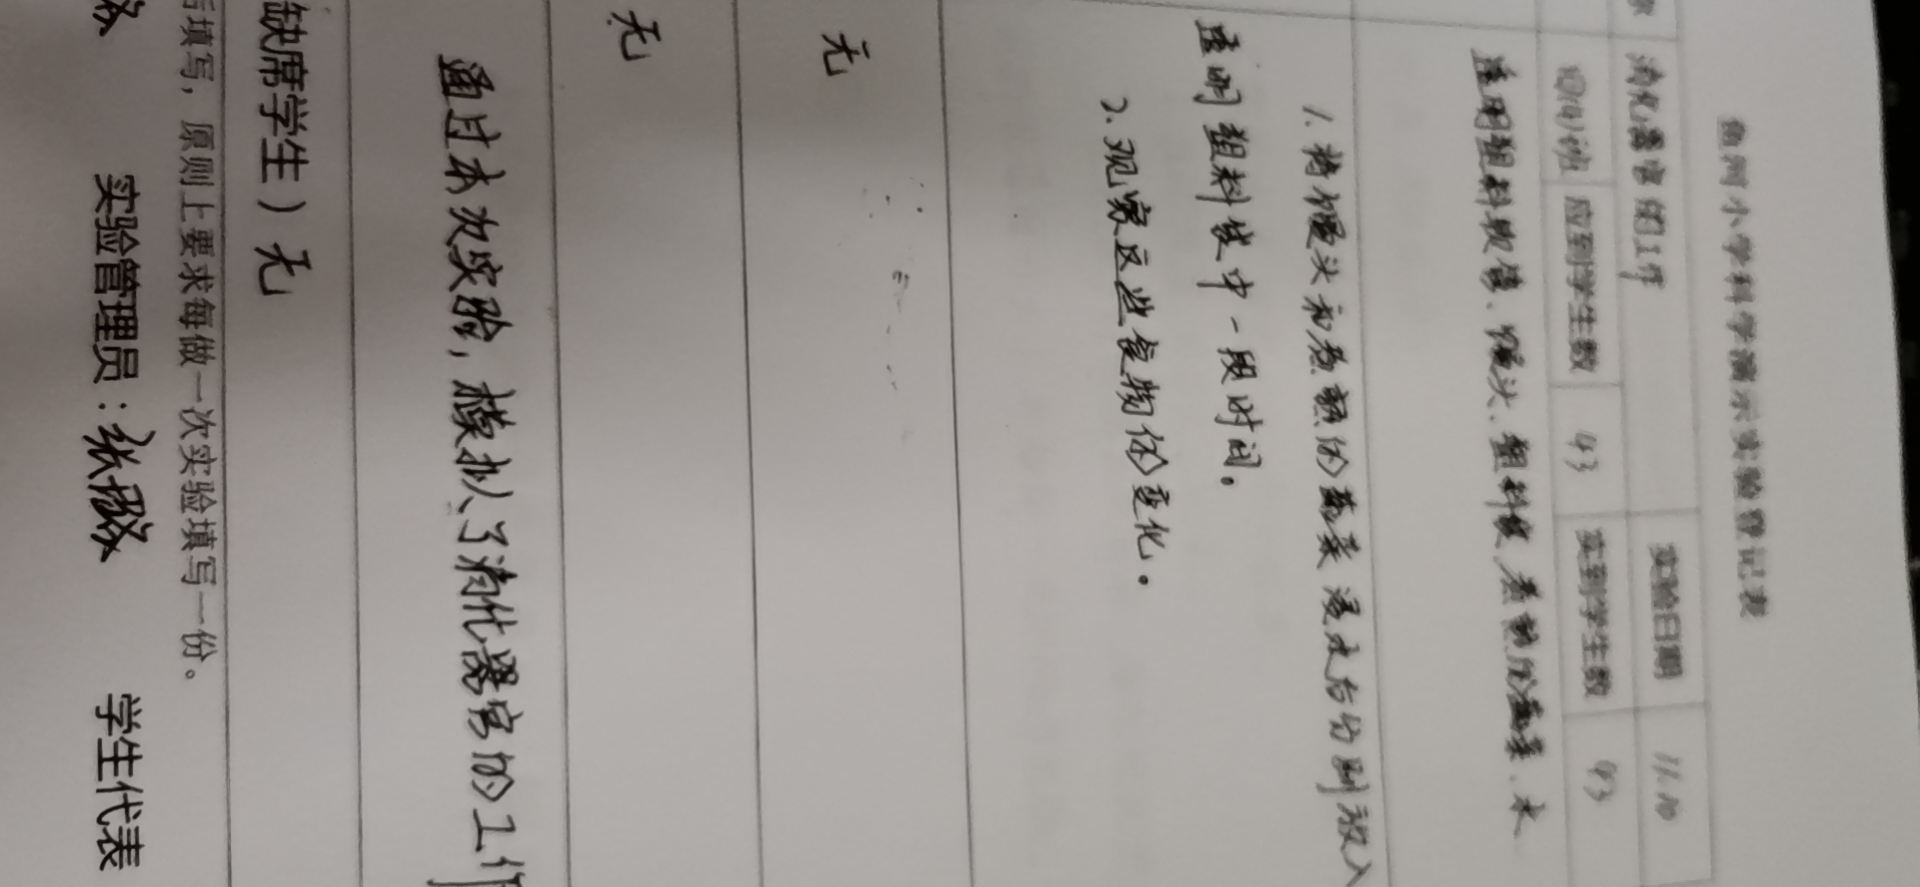 鱼河小学科学演示实验登记表
消化器官的工作 实验日期 11.10
四(4)班 应到学生数 43 实到学生数 43
透明塑料软管、馒头、塑料袋、煮熟的蔬菜、水
1.将馒头和煮熟的蔬菜浸水后分别放入
透明塑料袋中一段时间。
2.观察这些食物的变化。
无
无
通过本次实验,模拟了消化器官的工作
缺席学生)无
后填写,原则上要求每做一次实验填写一份。
实验管理员:张 学生代表